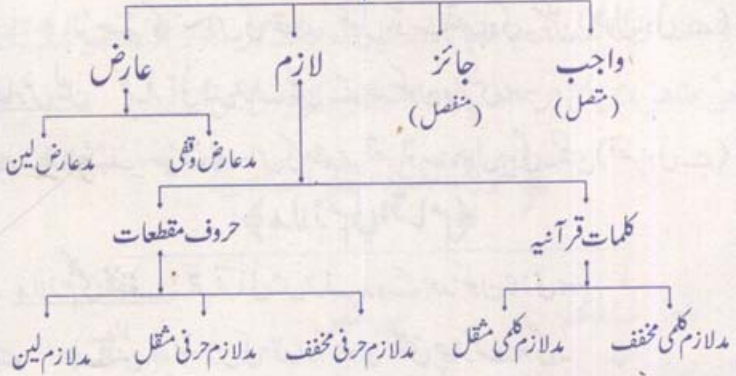 واجب جائز لازم عارض
(متصل) (منفصل)
مدعارض وقفی مدعارض لین
کلمات قرآنیہ حروف مقطعات
مدلازم کلمی مخفف مدلازم کلمی مثقل مدلازم حرفی مخفف مدلازم حرفی مثقل مدلازم لین